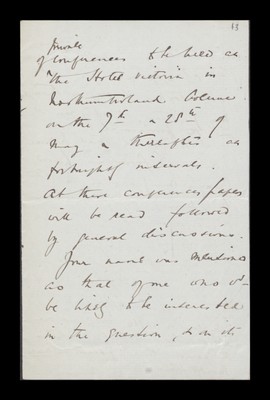 13
private
of conferences to be held at
the Hotel Victoria in
Northumberland Avenue
on the 7th & 28th of
May & thereafter at
fortnightly intervals.
At these conferences papers
will be read followed
by general discussions.
Your name was mentioned
as that of one who wd
be likely to be interested
in the question, & on its